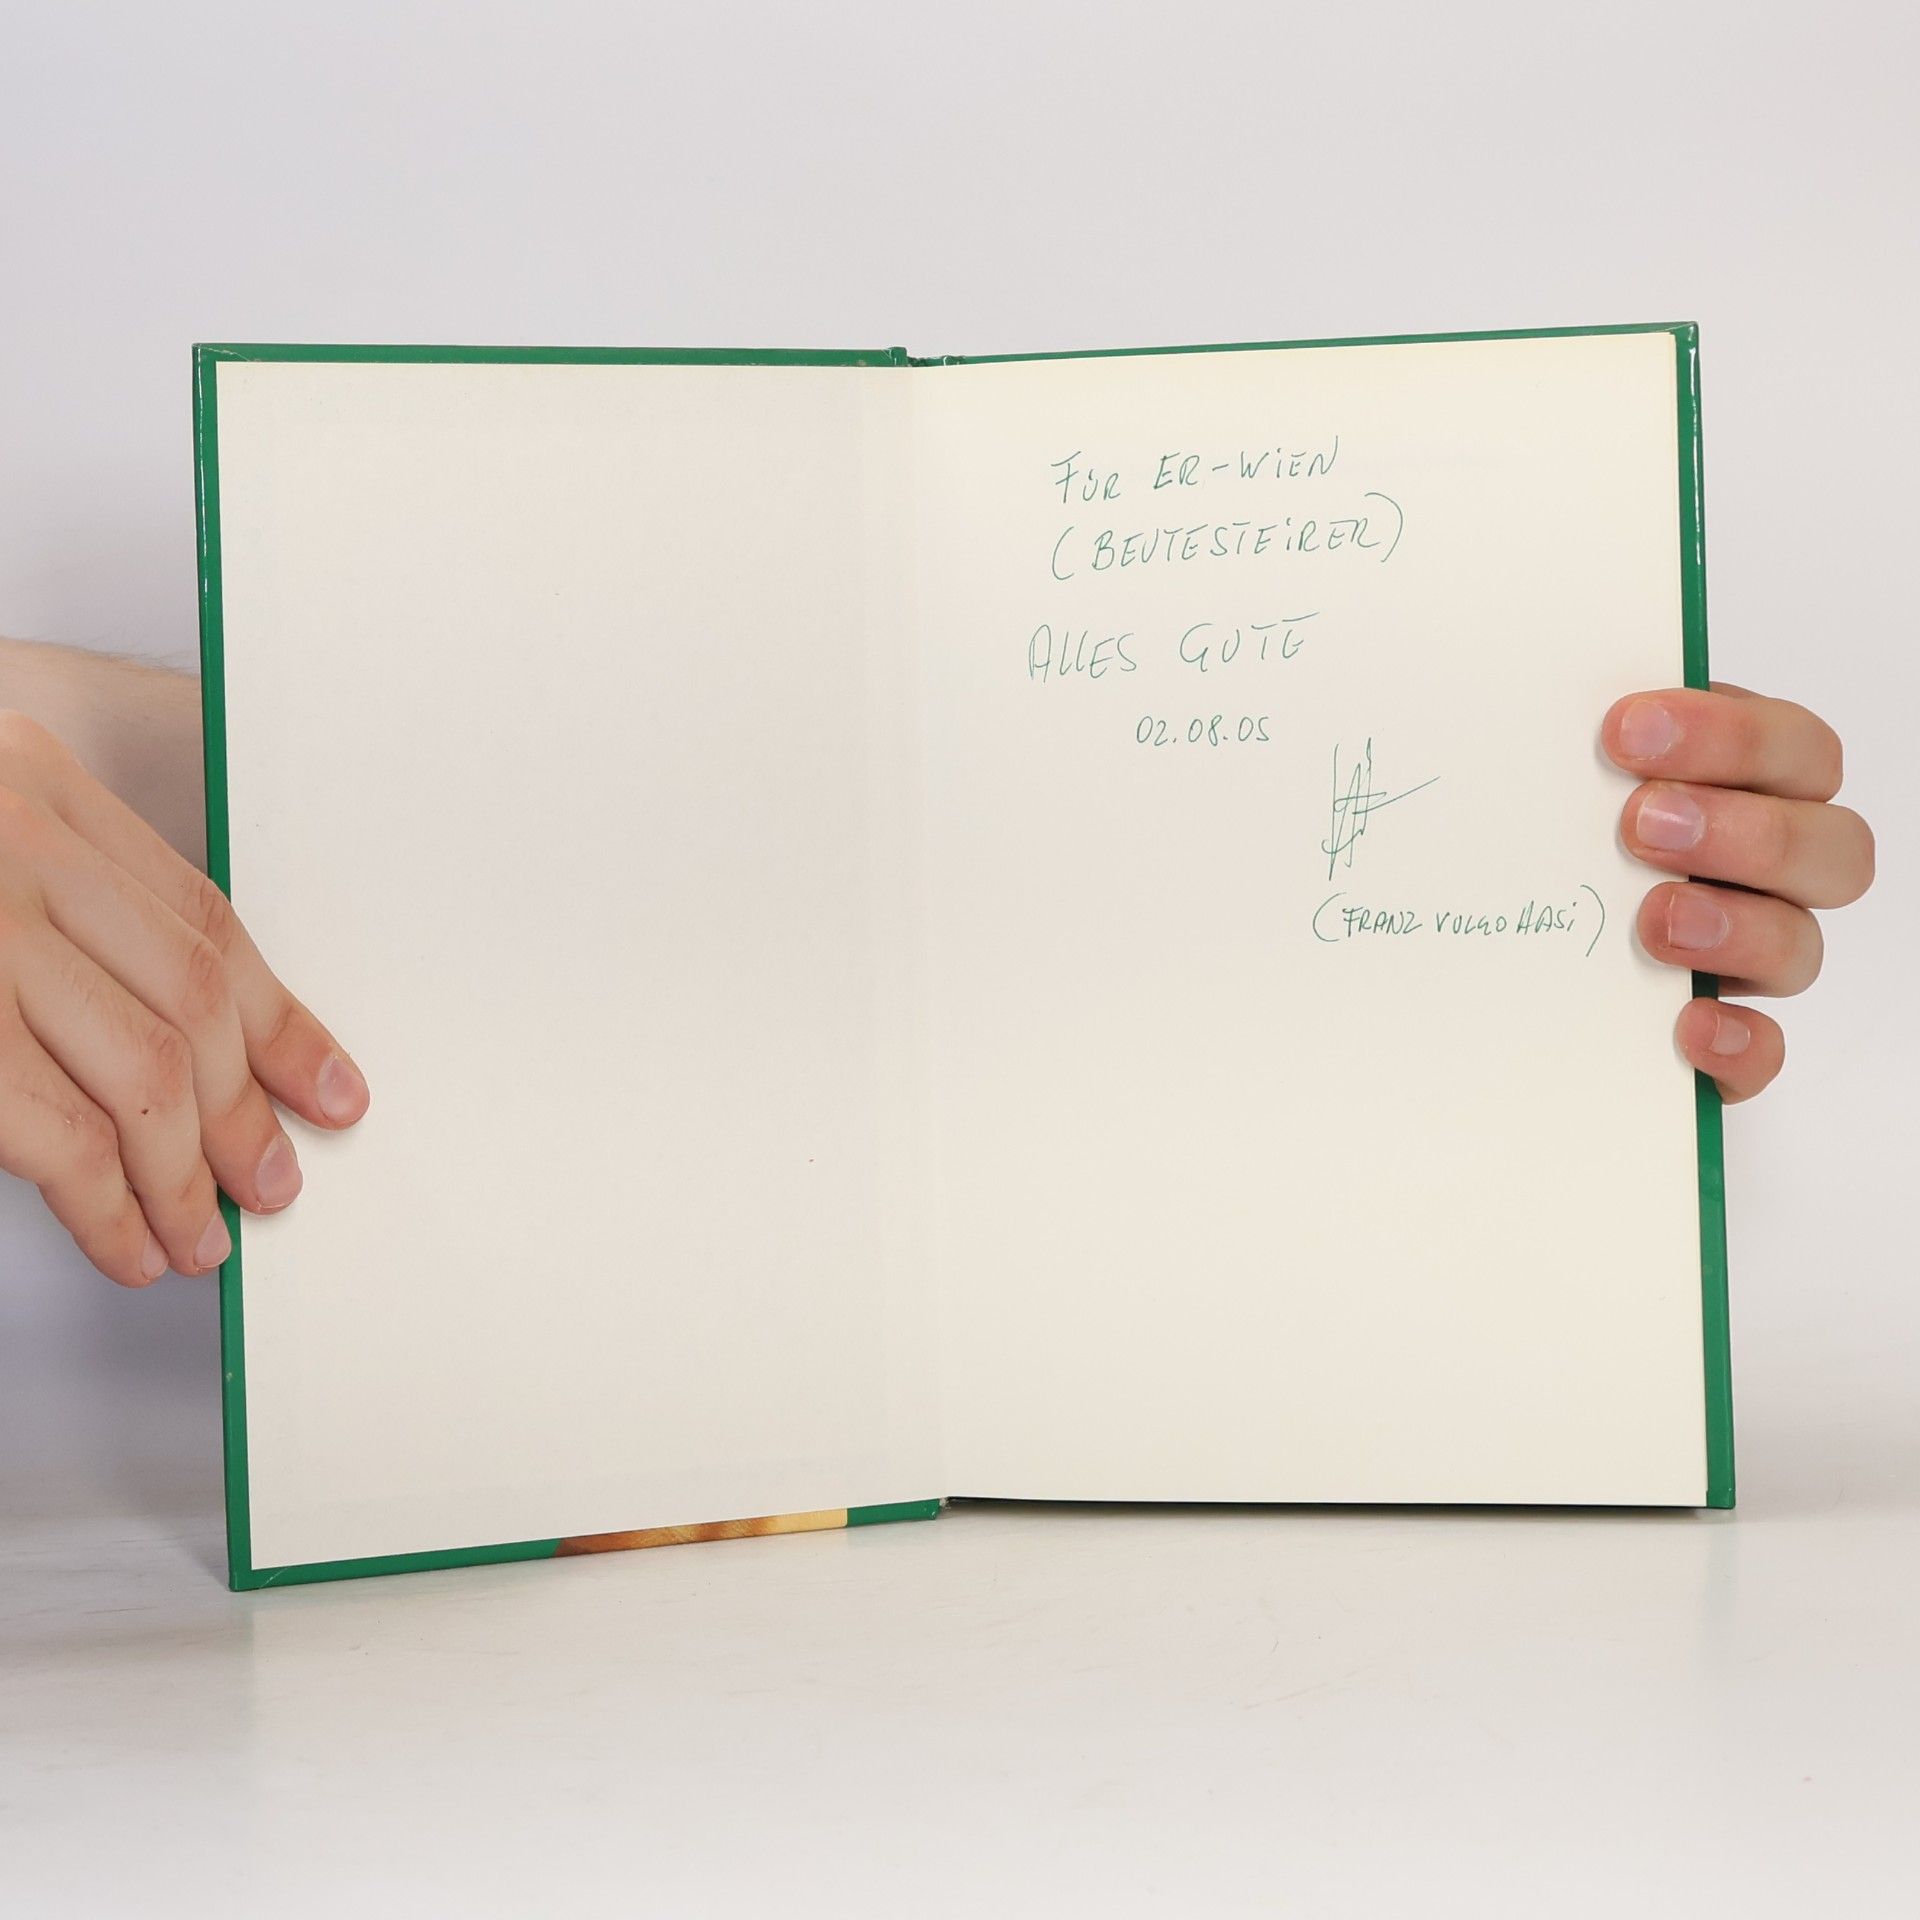 FÜR ER-WiEN
(BEUTESTEiRER)
ALLES GUTE
02.08.05
(FRANZ VULGO HASi)